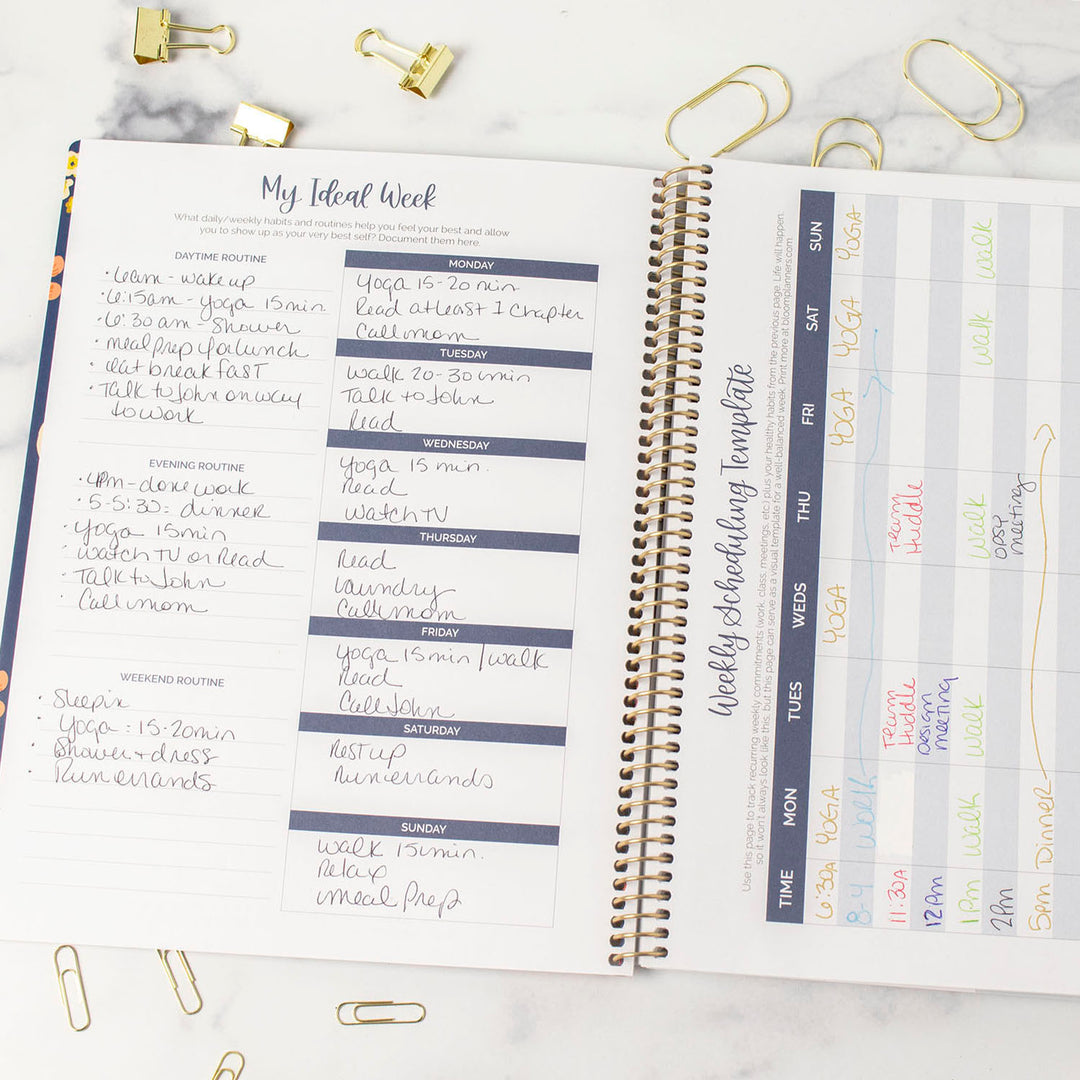 My Ideal Week
What daily/weekly habits and routines help you feel your best and allow
you to show up as your very best self? Document them here.
DAYTIME ROUTINE
• 6am - wake up
• 6:15am - Yoga 15 min
• 6:30 am - Shower
• meal prep for lunch
• eat breakfast
• Talk to John on way
to work
EVENING ROUTINE
• 4pm - done work
• 5-5:30: dinner
• Yoga 15min
• watch TV or Read
• Talk to John
• Call mom
WEEKEND ROUTINE
• Sleep in
• Yoga : 15-20min
• Shower + dress
• Run errands
MONDAY
Yoga 15-20 min
Read atleast 1 Chapter
Call mom
TUESDAY
Walk 20-30 min
Talk to John
Read
WEDNESDAY
Yoga 15 min.
Read
Watch TV
THURSDAY
Read
Laundry
Call mom
FRIDAY
Yoga 15min / walk
Read
Call John
SATURDAY
Rest up
Run errands
SUNDAY
Walk 15min.
Relax
meal Prep
Weekly Scheduling Template
Use this page to track recurring weekly commitments (work, class, meetings, etc) plus your healthy habits from the previous page. Life will happen,
so it won't always look like this, but this page can serve as a visual template for a well-balanced week. Print more at bloomplanners.com
TIME MON TUES WEDS THU FRI SAT SUN
6:30A YOGA YOGA YOGA YOGA YOGA
8-4 WORK
11:30A Team Huddle Team Huddle
12pm Design meeting
1pm Walk Walk Walk Walk Walk
2pm OPSY meeting
5pm Dinner